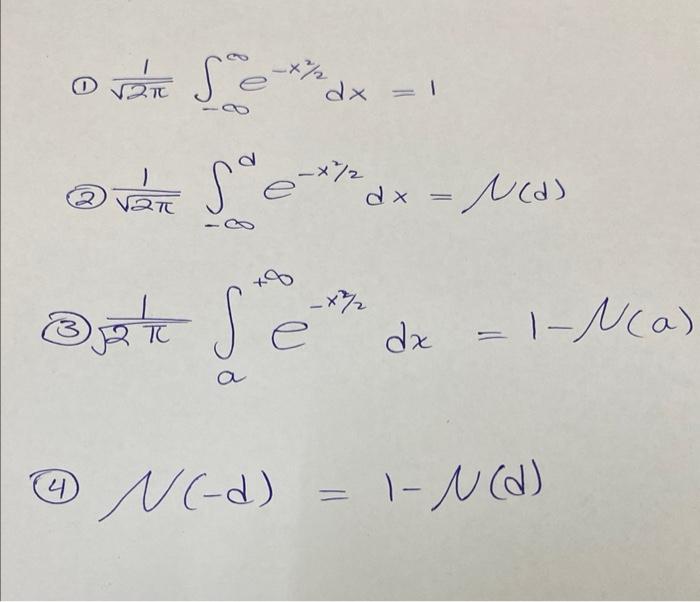 ① 1/√2π ∫_{-∞}^{∞} e^{-x²/2} dx = 1
② 1/√2π ∫_{-∞}^{d} e^{-x²/2} dx = N(d)
③ 1/√2π ∫_{a}^{+∞} e^{-x²/2} dx = 1-N(a)
④ N(-d) = 1-N(d)